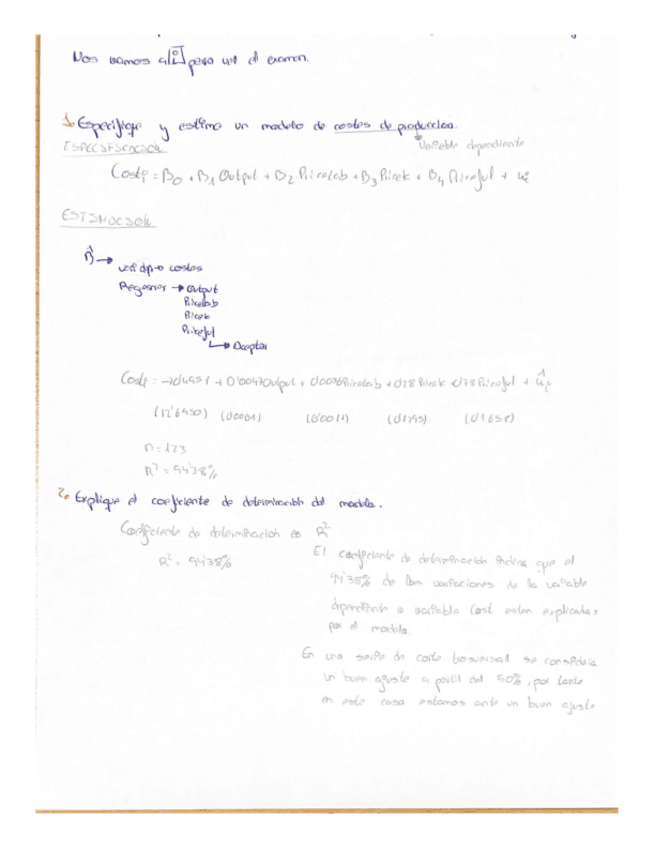 Nos vamos a para ver el examen.
1. Especifique y estime un modelo de costes de produccion.
ESPECIFICACION
Variable dependiente
Costᵢ = B₀ + B₁ Output + B₂ Pricelab + B₃ Pricek + B₄ Pricefuel + uᵢ
ESTIMACION
β̂ → var dp → costes
Regresor → Output
Pricelab
Pricek
Pricefuel
→ Aceptar
Costᵢ = + 0'0047Output + 0'18 Pricek +
(0'0001) (0'0011)
n = 123
R² = 94'38%
2. Explique el coeficiente de determinación del modelo.
Coeficiente de determinacion es R²
R² = 94'38%
El coeficiente de determinación indica que el
94'38% de las variaciones de la variable
dependiente o variable Cost estan explicadas
por el modelo.
En una serie de corte transversal se considera
un buen ajuste a partir del 50%, por tanto
en este caso estamos ante un buen ajuste